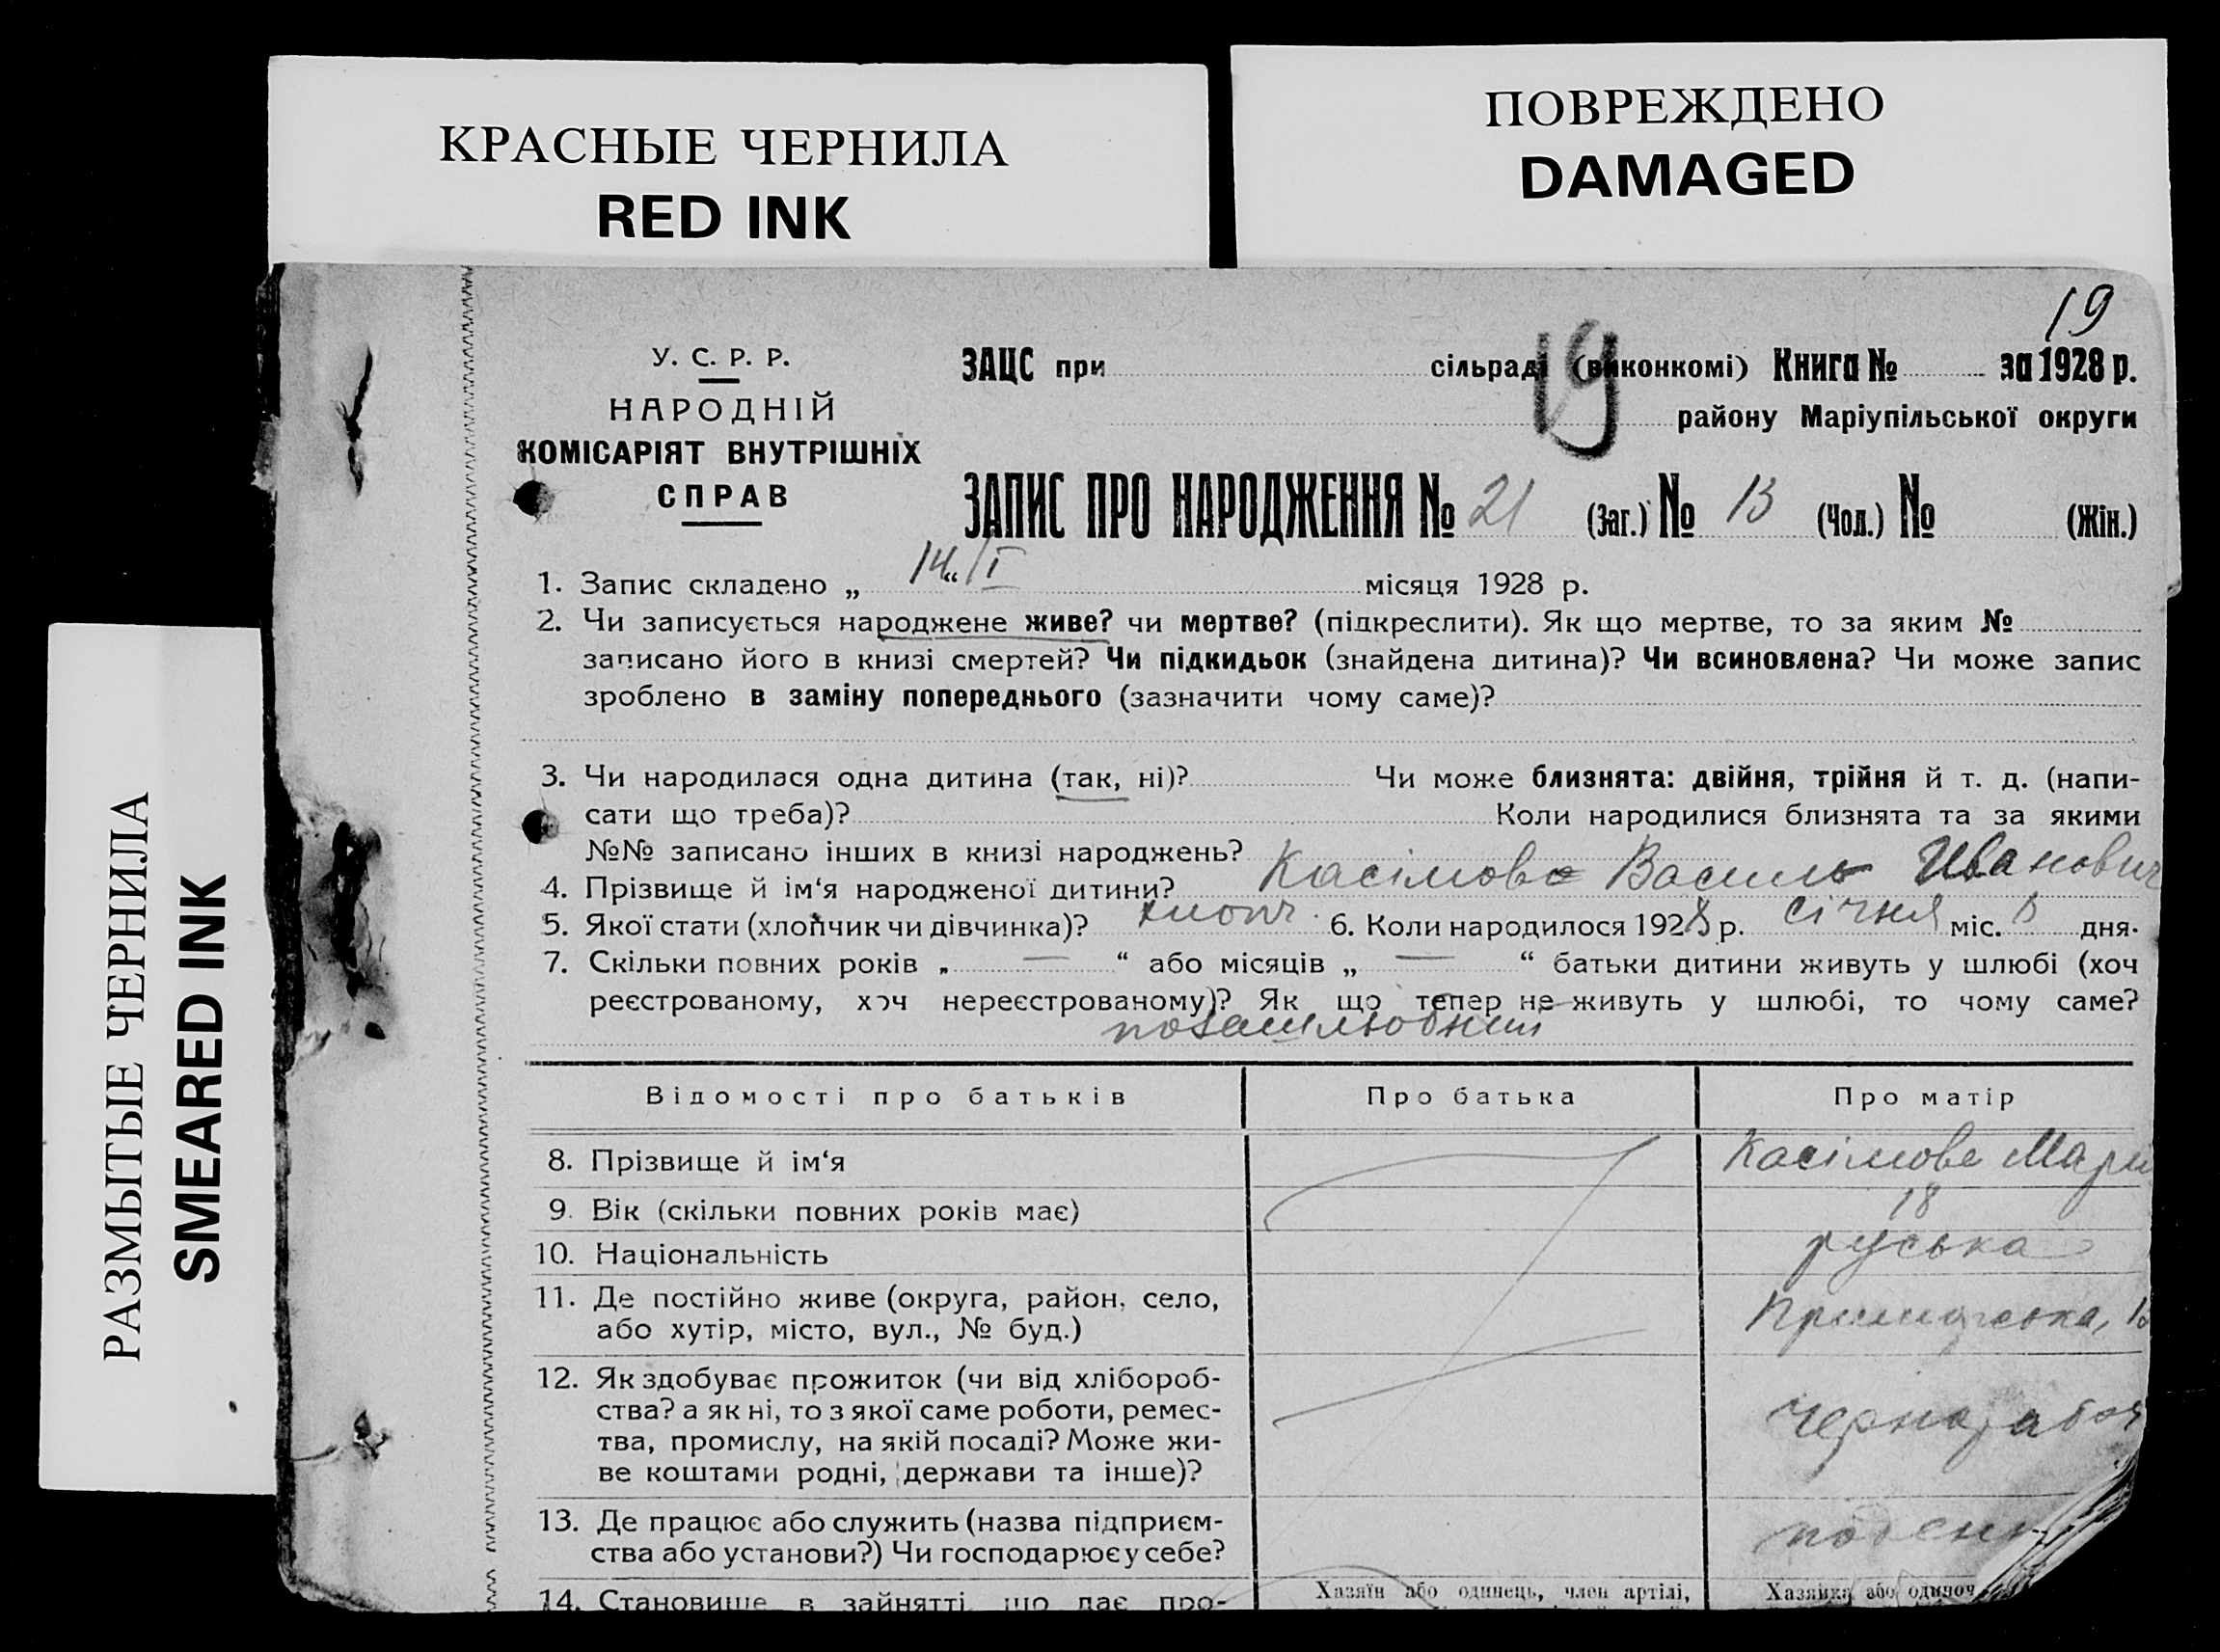 КРАСНЫЕ ЧЕРНИЛА
RED INK
ПОВРЕЖДЕНО
DAMAGED
РАЗМЫТЫЕ ЧЕРНИЛА
SMEARED INK
19
19
У. С. Р. Р.
НАРОДНІЙ
КОМІСАРІЯТ ВНУТРІШНІХ
СПРАВ
ЗАЦС при сільраді (виконкомі) Книга № за 1928 р.
району Маріупільської округи
ЗАПИС ПРО НАРОДЖЕННЯ № 21 (Заг.) № 13 (Чол.) № (Жін.)
1. Запис складено „ 14 “ /I місяця 1928 р.
2. Чи записується народжене живе? чи мертве? (підкреслити). Як що мертве, то за яким №
записано його в книзі смертей? Чи підкидьок (знайдена дитина)? Чи всиновлена? Чи може запис
зроблено в заміну попереднього (зазначити чому саме)?
3. Чи народилася одна дитина (так, ні)? Чи може близнята: двійня, трійня й т. д. (напи-
сати що треба)? Коли народилися близнята та за якими
№№ записано інших в книзі народжень?
4. Прізвище й ім‘я народженої дитини? Василь Иванович
5. Якої стати (хлопчик чи дівчинка)? хлопч. 6. Коли народилося 1928 р. січня міс. дня.
7. Скільки повних років „ — “ або місяців „ — “ батьки дитини живуть у шлюбі (хоч
реєстрованому, хоч нереєстрованому)? Як що тепер не живуть у шлюбі, то чому саме?
позашлюбний
Відомості про батьків Про батька Про матір
8. Прізвище й ім‘я Касімова
9. Вік (скільки повних років має) 18
10. Національність руська
11. Де постійно живе (округа, район, село,
або хутір, місто, вул., № буд.)
12. Як здобуває прожиток (чи від хлібороб-
ства? а як ні, то з якої саме роботи, ремес-
тва, промислу, на якій посаді? Може жи-
ве коштами родні, держави та інше)?
чернорабоч
13. Де працює або служить (назва підприєм-
ства або установи?) Чи господарює у себе?
14. Становище в зайнятті що дає про-
Хазяїн або одинець, член артілі,
Хазяйка або одиноч